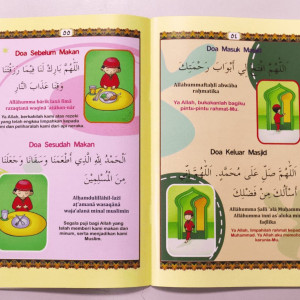 Doa Sebelum Makan
اَللّٰهُمَّ بَارِكْ لَنَا فِيْمَا رَزَقْتَنَا
وَقِنَا عَذَابَ النَّارِ
Allâhumma bârik lanâ fîmâ
razaqtanâ waqinâ 'adzâban-nâr
Ya Allah, berkahilah kami dan rezeki
yang telah engkau limpahkan kepada
kami dan peliharalah kami dari api neraka
Doa Sesudah Makan
اَلْحَمْدُ لِلّٰهِ الَّذِيْ أَطْعَمَنَا وَسَقَانَا وَجَعَلَنَا
مِنَ الْمُسْلِمِيْنَ
Alhamdulillâhil-ladzî
at'amanâ wasaqânâ
waja'alanâ minal muslimîn
Segala puji bagi Allah yang
telah memberi kami makan dan
minum, serta menjadikan kami
Muslim.
Doa Masuk
أَبْوَابَ رَحْمَتِكَ
Allâhummaftahlî abwâba
rahmatika
Ya Allah, bukakanlah bagiku
pintu-pintu rahmat-Mu.
Doa Keluar Masjid
اَللّٰهُمَّ صَلِّ عَلَى مُحَمَّدٍ. اَللّٰهُمَّ
أَسْأَلُكَ مِنْ فَضْلِكَ
Allâhumma
Allâhumma innî as'aluka min
fadlika
Ya Allah, limpahkan rahmat kepada
Muhammad. Ya Allah aku
karunia-Mu.